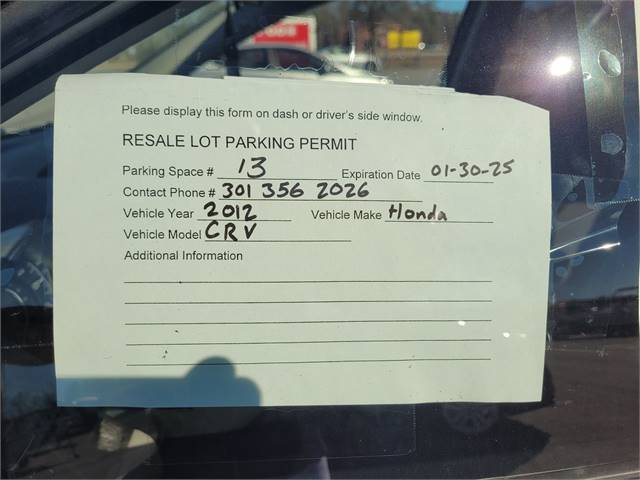 Please display this form on dash or driver's side window.
RESALE LOT PARKING PERMIT
Parking Space # 13 Expiration Date 01-30-25
Contact Phone # 301 356 2026
Vehicle Year 2012 Vehicle Make Honda
Vehicle Model CRV
Additional Information